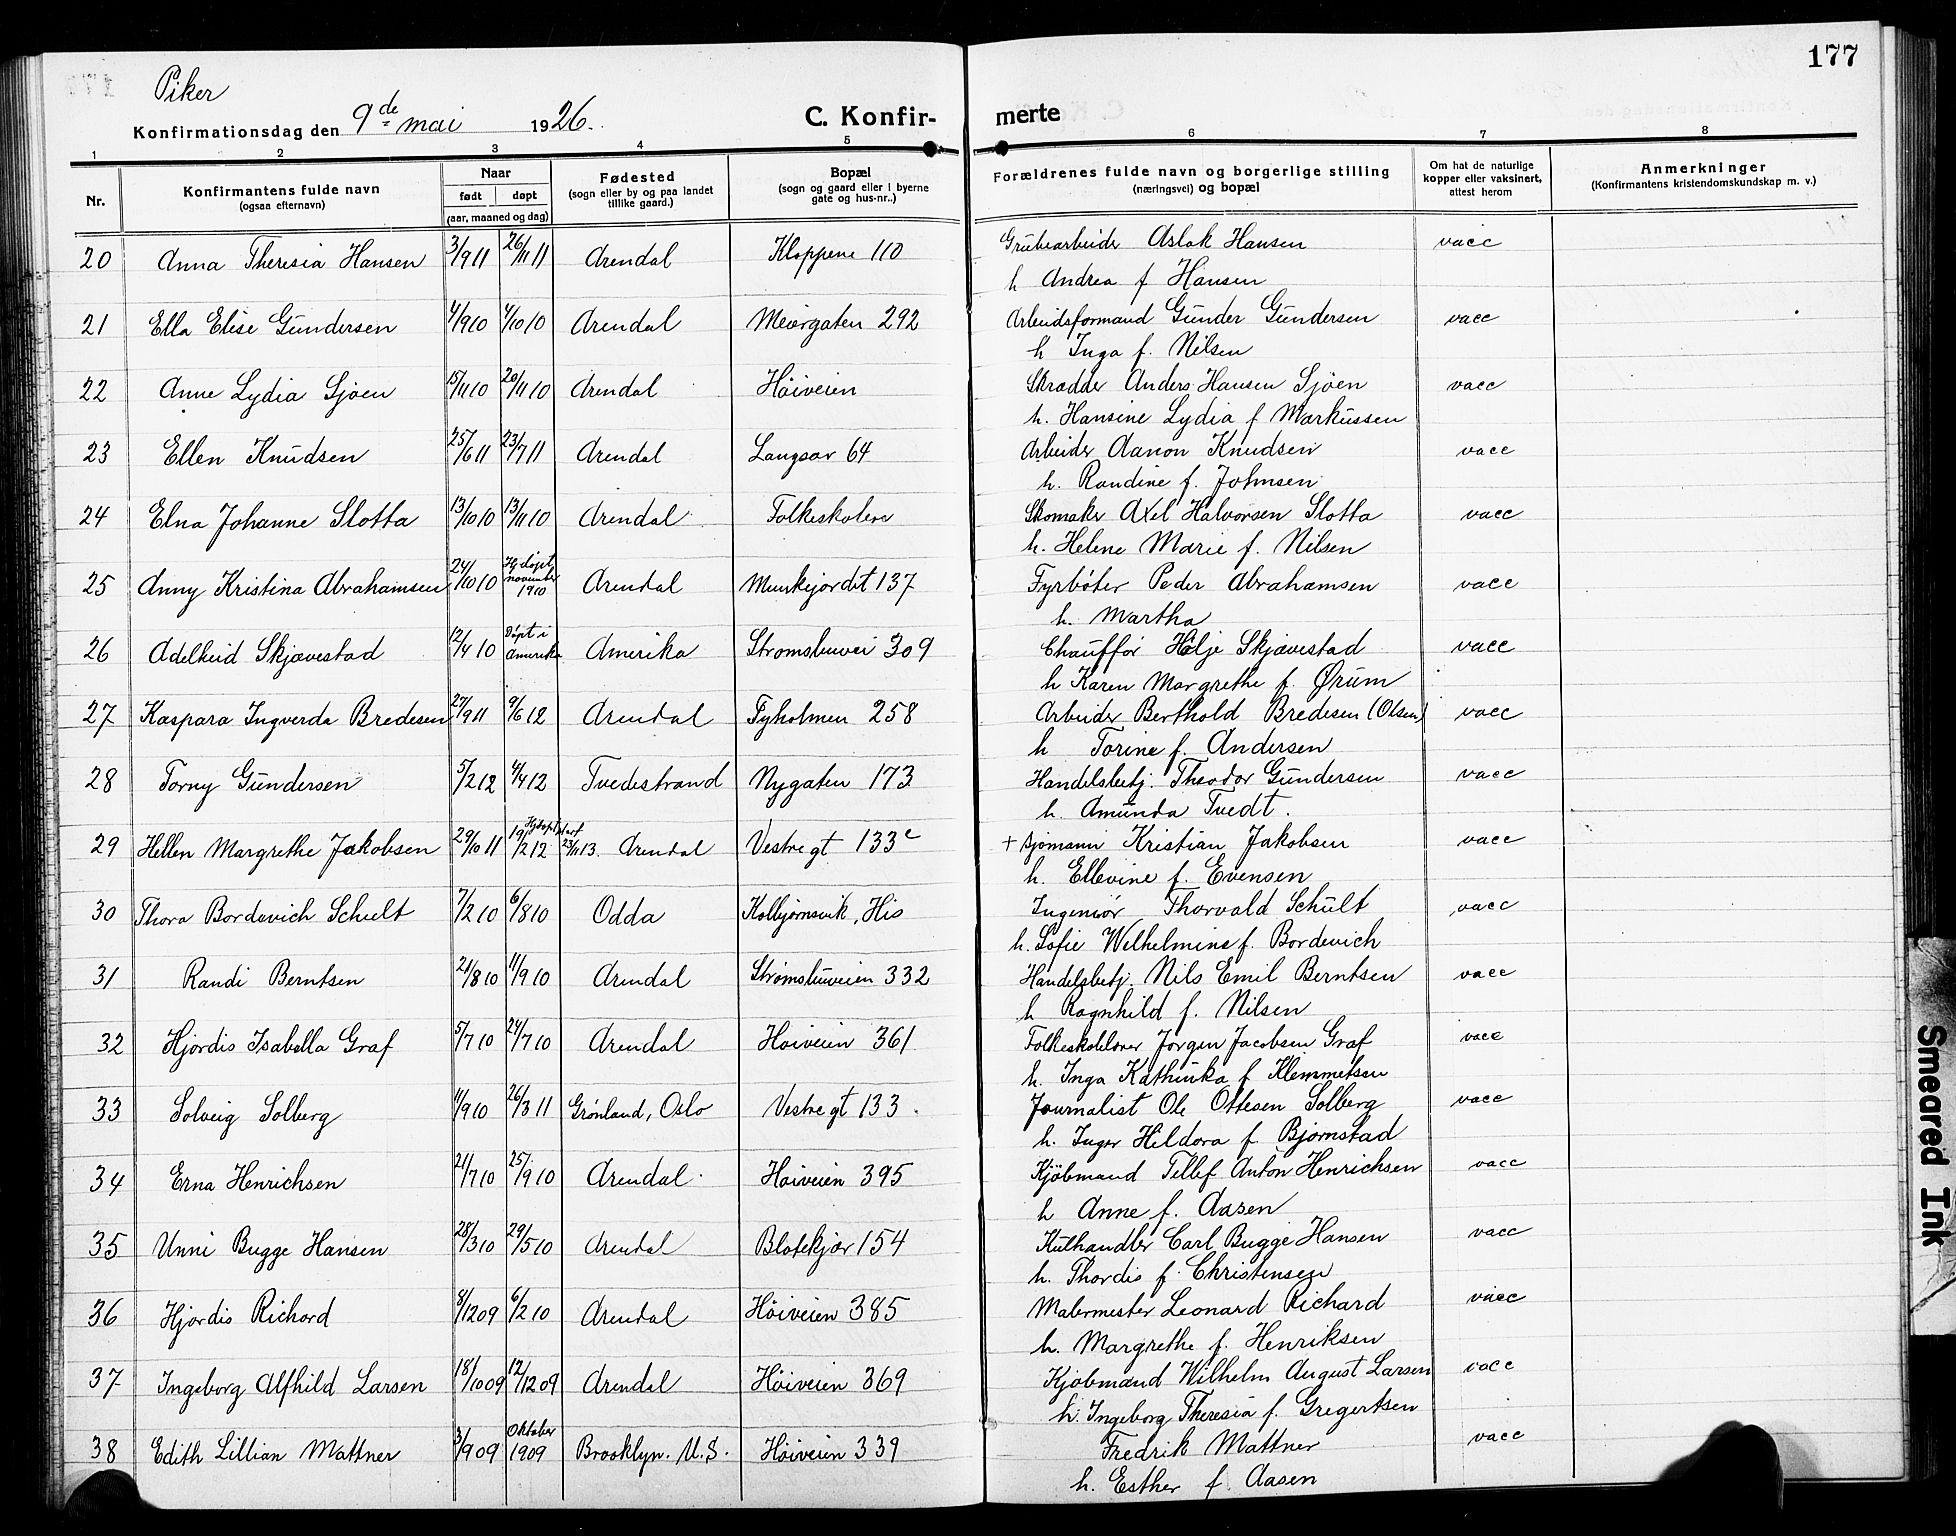 177
Piker
Konfirmationsdag den 9de mai 1926.
C. Konfirmerte
1 2 3 4 5 6 7 8
Nr.
Konfirmantens fulde navn
(ogsaa efternavn)
Naar
født døpt
(aar, maaned og dag)
Fødested
(sogn eller by og paa landet
tillike gaard.)
Bopæl
(sogn og gaard eller i byerne
gate og hus-nr..)
Forældrenes fulde navn og borgerlige stilling
(næringsvei) og bopæl
Om hat de naturlige
kopper eller vaksinert,
attest herom
Anmerkninger
(Konfirmantens kristendomskundskap m. v.)
20 Anna Theresia Hansen 3/9 11 26/11 11 Arendal Kloppene 110 Grubearbeider Aslak Hansen vacc
h Andrea f Hansen
21 Ella Elise Gundersen 4/9 10 4/10 10 Arendal 292 Arbeidsformand Gunder Gundersen vacc
h Inga f. Nilsen
22 Anne Lydia Sjøen 15/11 10 20/11 10 Arendal Høiveien Skrædder Anders Hansen Sjöen vacc
h. Hansine Lydia f Markussen
23 Ellen Knudsen 25/6 11 23/7 11 Arendal Langsæ 64 Arbeider Aanon Knudsen vacc
h. Randine f. Johnsen
24 Elna Johanne Slotta 13/10 10 13/11 10 Arendal Folkeskolen Skomaker Axel Halvorsen Slotta vacc
h. Helene Marie f. Nilsen
25 Anny Kristina Abrahamsen 24/10 10 Hj.døpt november 1910 Arendal Munkejordet 137 Fyrbøter Peder Abrahamsen vacc
h. Martha
26 Adelheid Skjævestad 12/4 10 Døpt i Amerika Amerika Strømsbuvei 309 Chauffør Helje Skjævestad vacc
h Karen Margrethe f. Ørum
27 Kaspara Ingverda Bredesen 27/9 11 9/6 12 Arendal Tyholmen 258 Arbeider Berthold Bredesen (Olsen) vacc
h Torine f. Andersen
28 Torny Gundersen 5/2 12 4/4 12 Tvedestrand Nygaten 173 Handelsbetj. Theodor Gundersen vacc
h. Amunda Tvedt.
29 Hellen Margrethe Jakobsen 29/10 11 19/2 12 23/11 13. Arendal Vestregt 133c + sjømann Kristian Jakobsen vacc
h. Ellevine f. Evensen
30 Thora Bordevich Schult 7/2 10 6/8 10 Odda Kolbjørnsvik, His Ingeniør Thorvald Schult vacc
h. Sofie Wilhelmine f. Bordevich
31 Randi Berntsen 21/8 10 11/9 10 Arendal Strømsbuveien 332 Handelsbetj. Nils Emil Berntsen vacc
h Ragnhild f. Nilsen
32 Hjørdis Isabella Graf 5/7 10 24/7 10 Arendal Høiveien 361 Folkeskolelærer Jørgen Jacobsen Graf vacc
h. Inga Kathinka f Klemmetsen
33 Solveig Solberg 11/9 10 26/3 11 Grønland, Oslo Vestregt 133. Journalist Ole Ottesen Solberg vacc
h. Inger Hildora f. Bjørnstad
34 Erna Henrichsen 21/7 10 25/9 10 Arendal Høiveien 395 Kjøbmand Tellef Anton Henrichsen vacc
h Anne f. Aasen
35 Unni Bugge Hansen 28/3 10 29/5 10 Arendal Blødekjær 154 Kulhandler Carl Bugge Hansen vacc
h. Thordis f. Christensen
36 Hjørdis Richard 8/12 09 6/2 10 Arendal Høiveien 385 Malermester Leonard Richard vacc
h. Margrethe f. Henriksen
37 Ingeborg Alfhild Larsen 18/10 09 12/12 09 Arendal Høiveien 369 Kjøbmand Wilhelm August Larsen vacc
h. Ingeborg Theresia f. Gregertsen
38 Edith Lillian Mattner 3/9 09 Oktober 1909 Brooklyn. U.S. Høiveien 339 Fredrik Mattner vacc
h. Esther f. Aasen
Smeared Ink